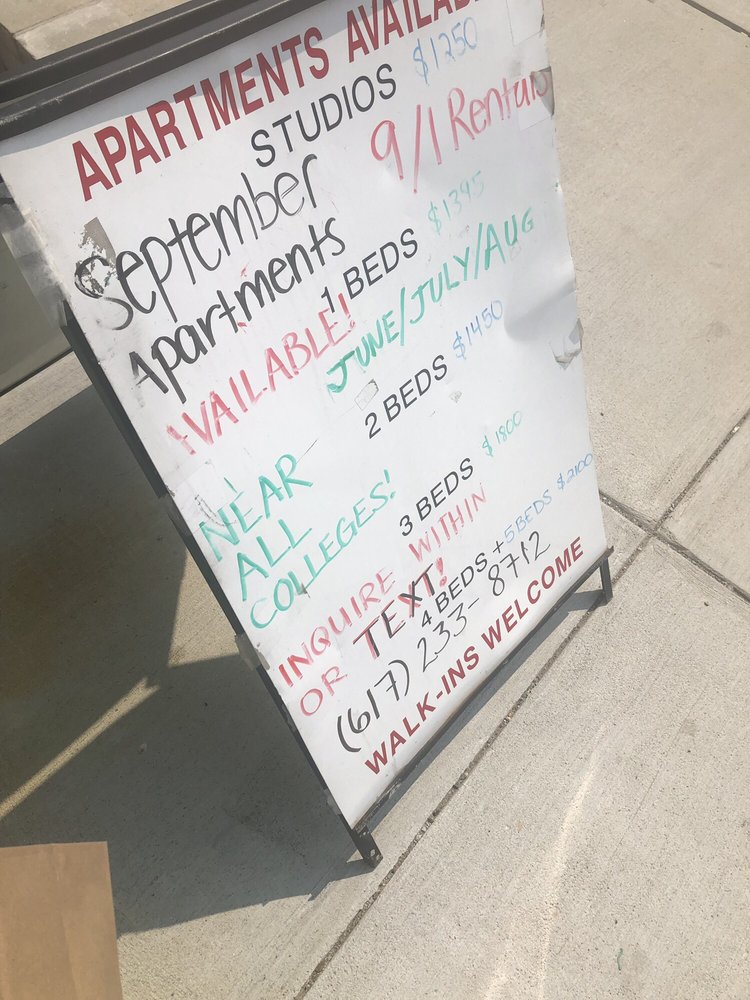 APARTMENTS AVAILAB
STUDIOS $1250
9/1 Rentals
September
Apartments
1 BEDS $1395
AVAILABLE!
JUNE/JULY/AUG
2 BEDS $1450
NEAR
ALL
COLLEGES!
3 BEDS $1800
INQUIRE WITHIN
OR TEXT!
4 BEDS + 5 BEDS $2100
(617) 233-8712
WALK-INS WELCOME